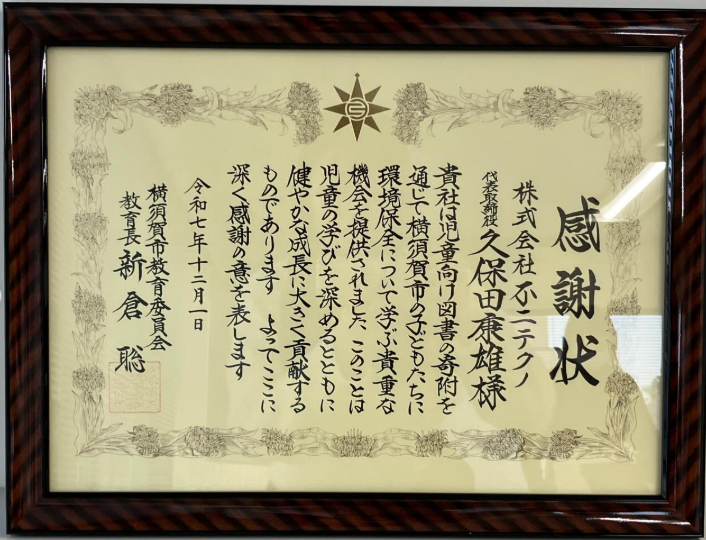 感謝状
株式会社不二テクノ
代表取締役 久保田康雄様
貴社は児童向け図書の寄附を
通じて横須賀市の子どもたちに
環境保全について学ぶ貴重な
機会を提供されました このことは
児童の学びを深めるとともに
健やかな成長に大きく貢献する
ものであります よってここに
深く感謝の意を表します
令和七年十二月一日
横須賀市教育委員会
教育長 新倉 聡